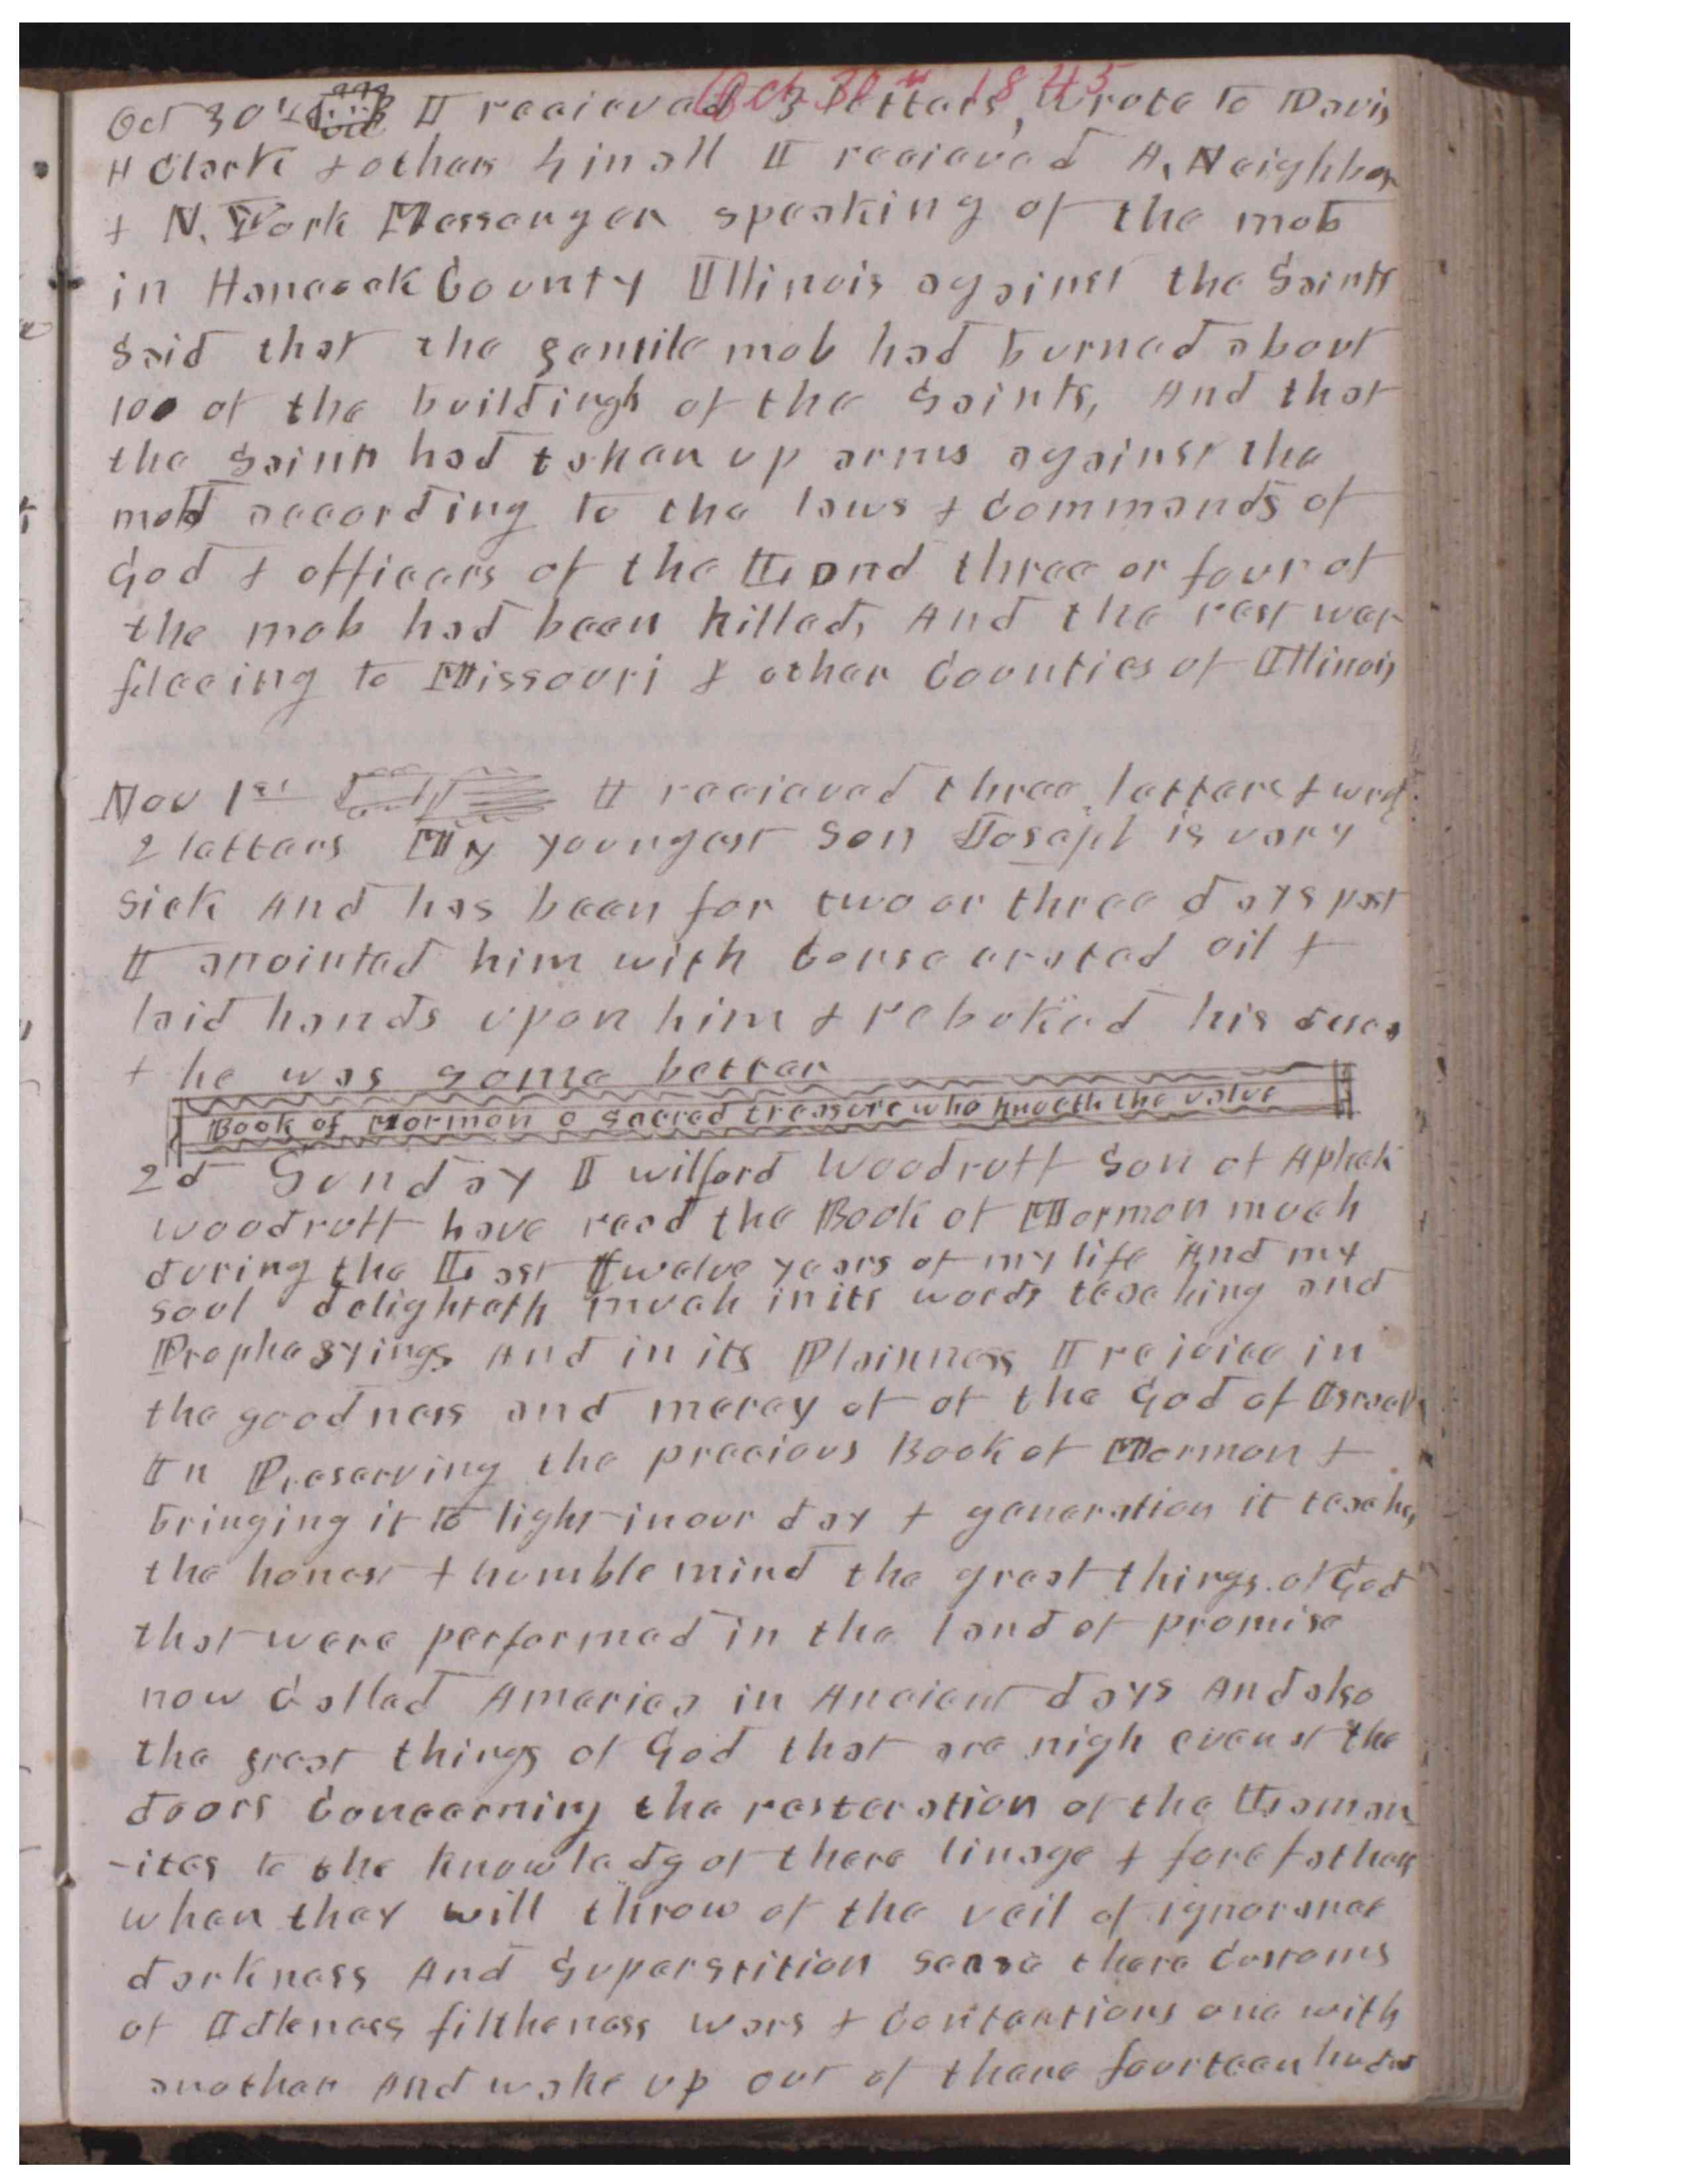 Oct 30th 1845
Oct 30th I recieved 3 letters, wrote to Davis
H Clark & others 4 in all I recieved A, Neighbor
& N. York Messenger speaking of the mob
in Hancock County Illinois against the Saints
Said that the gentile mob had burned about
100 of the buildings of the Saints, And that
the Saints had taken up arms against the
mob according to the laws & Commands of
God & officers of the Land three or four of
the mob had been killed, And the rest wer
fleeing to Missouri & other Counties of Illinois
Nov 1st I recieved three letters & wrot
2 letters My youngest Son Joseph is very
sick And has been for two or three days past
I anointed him with Consecrated oil &
laid hands upon him & rebuked his
& he was some better
Book of Mormon a sacred treasure who knoeth the value
2d Sunday I Wilford Woodruff Son of Aphek
Woodruff have read the Book of Mormon much
during the Last twelve years of my life And my
soul delighteth much in its words teaching and
Prophesyings And in its Plainness I rejoice in
the goodness and mercy of of the God of Israel
In Preserving the precious Book of Mormon &
bringing it to light in our day & generation it teaches
the honest & humble mind the great things of God
that were performed in the land of promise
now Called America in Ancient days And also
the great things of God that are nigh even at the
doors Concerning the resteration of the Laman
-ites to the knowledg of there linage & forefathers
when they will throw of the veil of ignorance
darkness And Superstition sease there Customs
of Idleness filtheness wars & Contentions one with
another And wake up out of there fourteen hundred